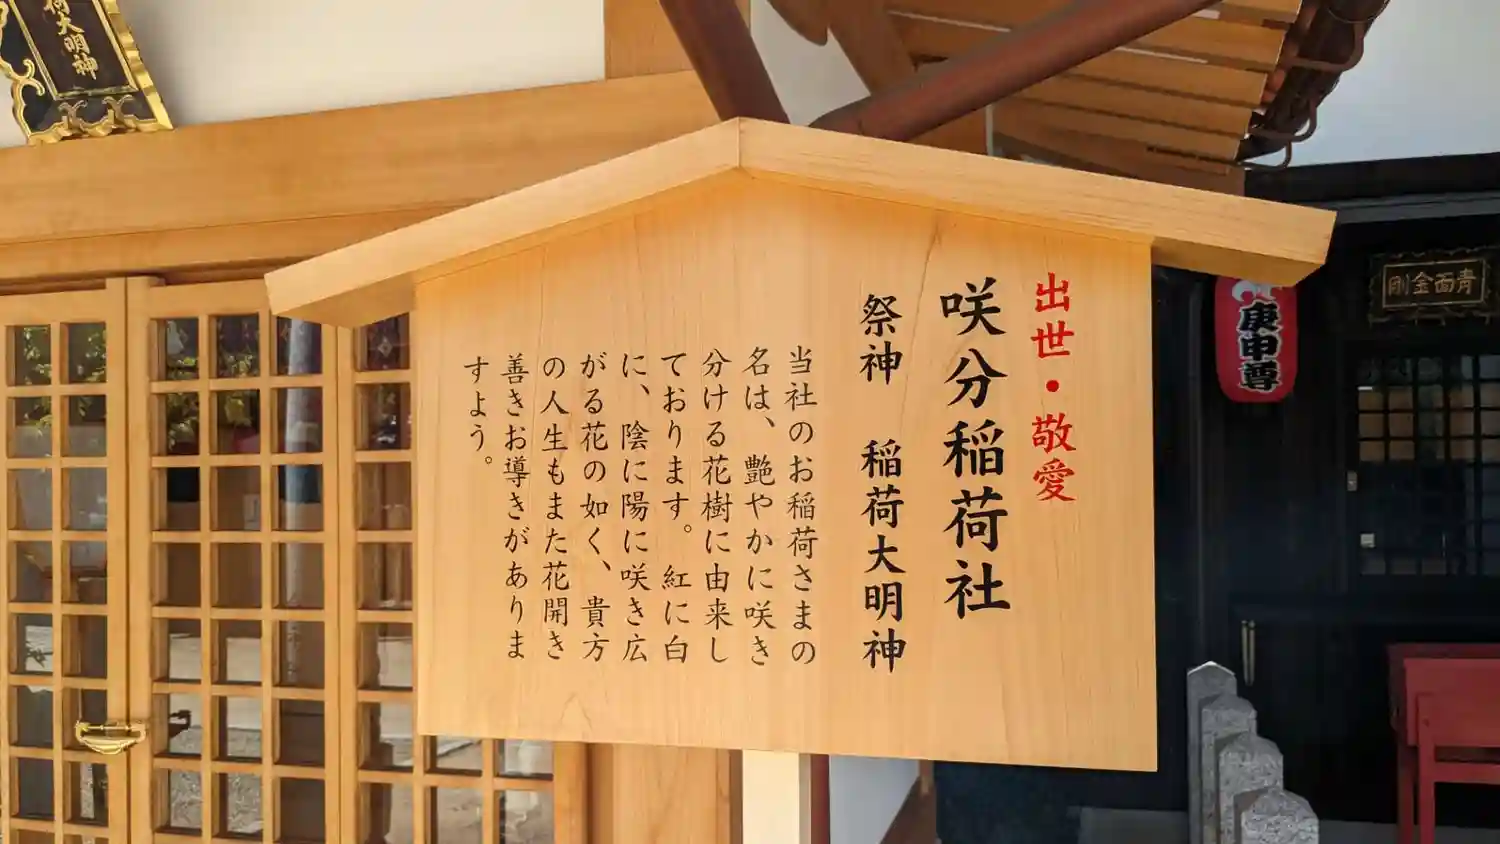 出世・敬愛
咲分稲荷社
祭神 稲荷大明神
当社のお稲荷さまの
名は、艶やかに咲き
分ける花樹に由来し
ております。紅に白
に、陰に陽に咲き広
がる花の如く、貴方
の人生もまた花開き
善きお導きがありま
すよう。
荷大明神
青面金剛
庚申尊